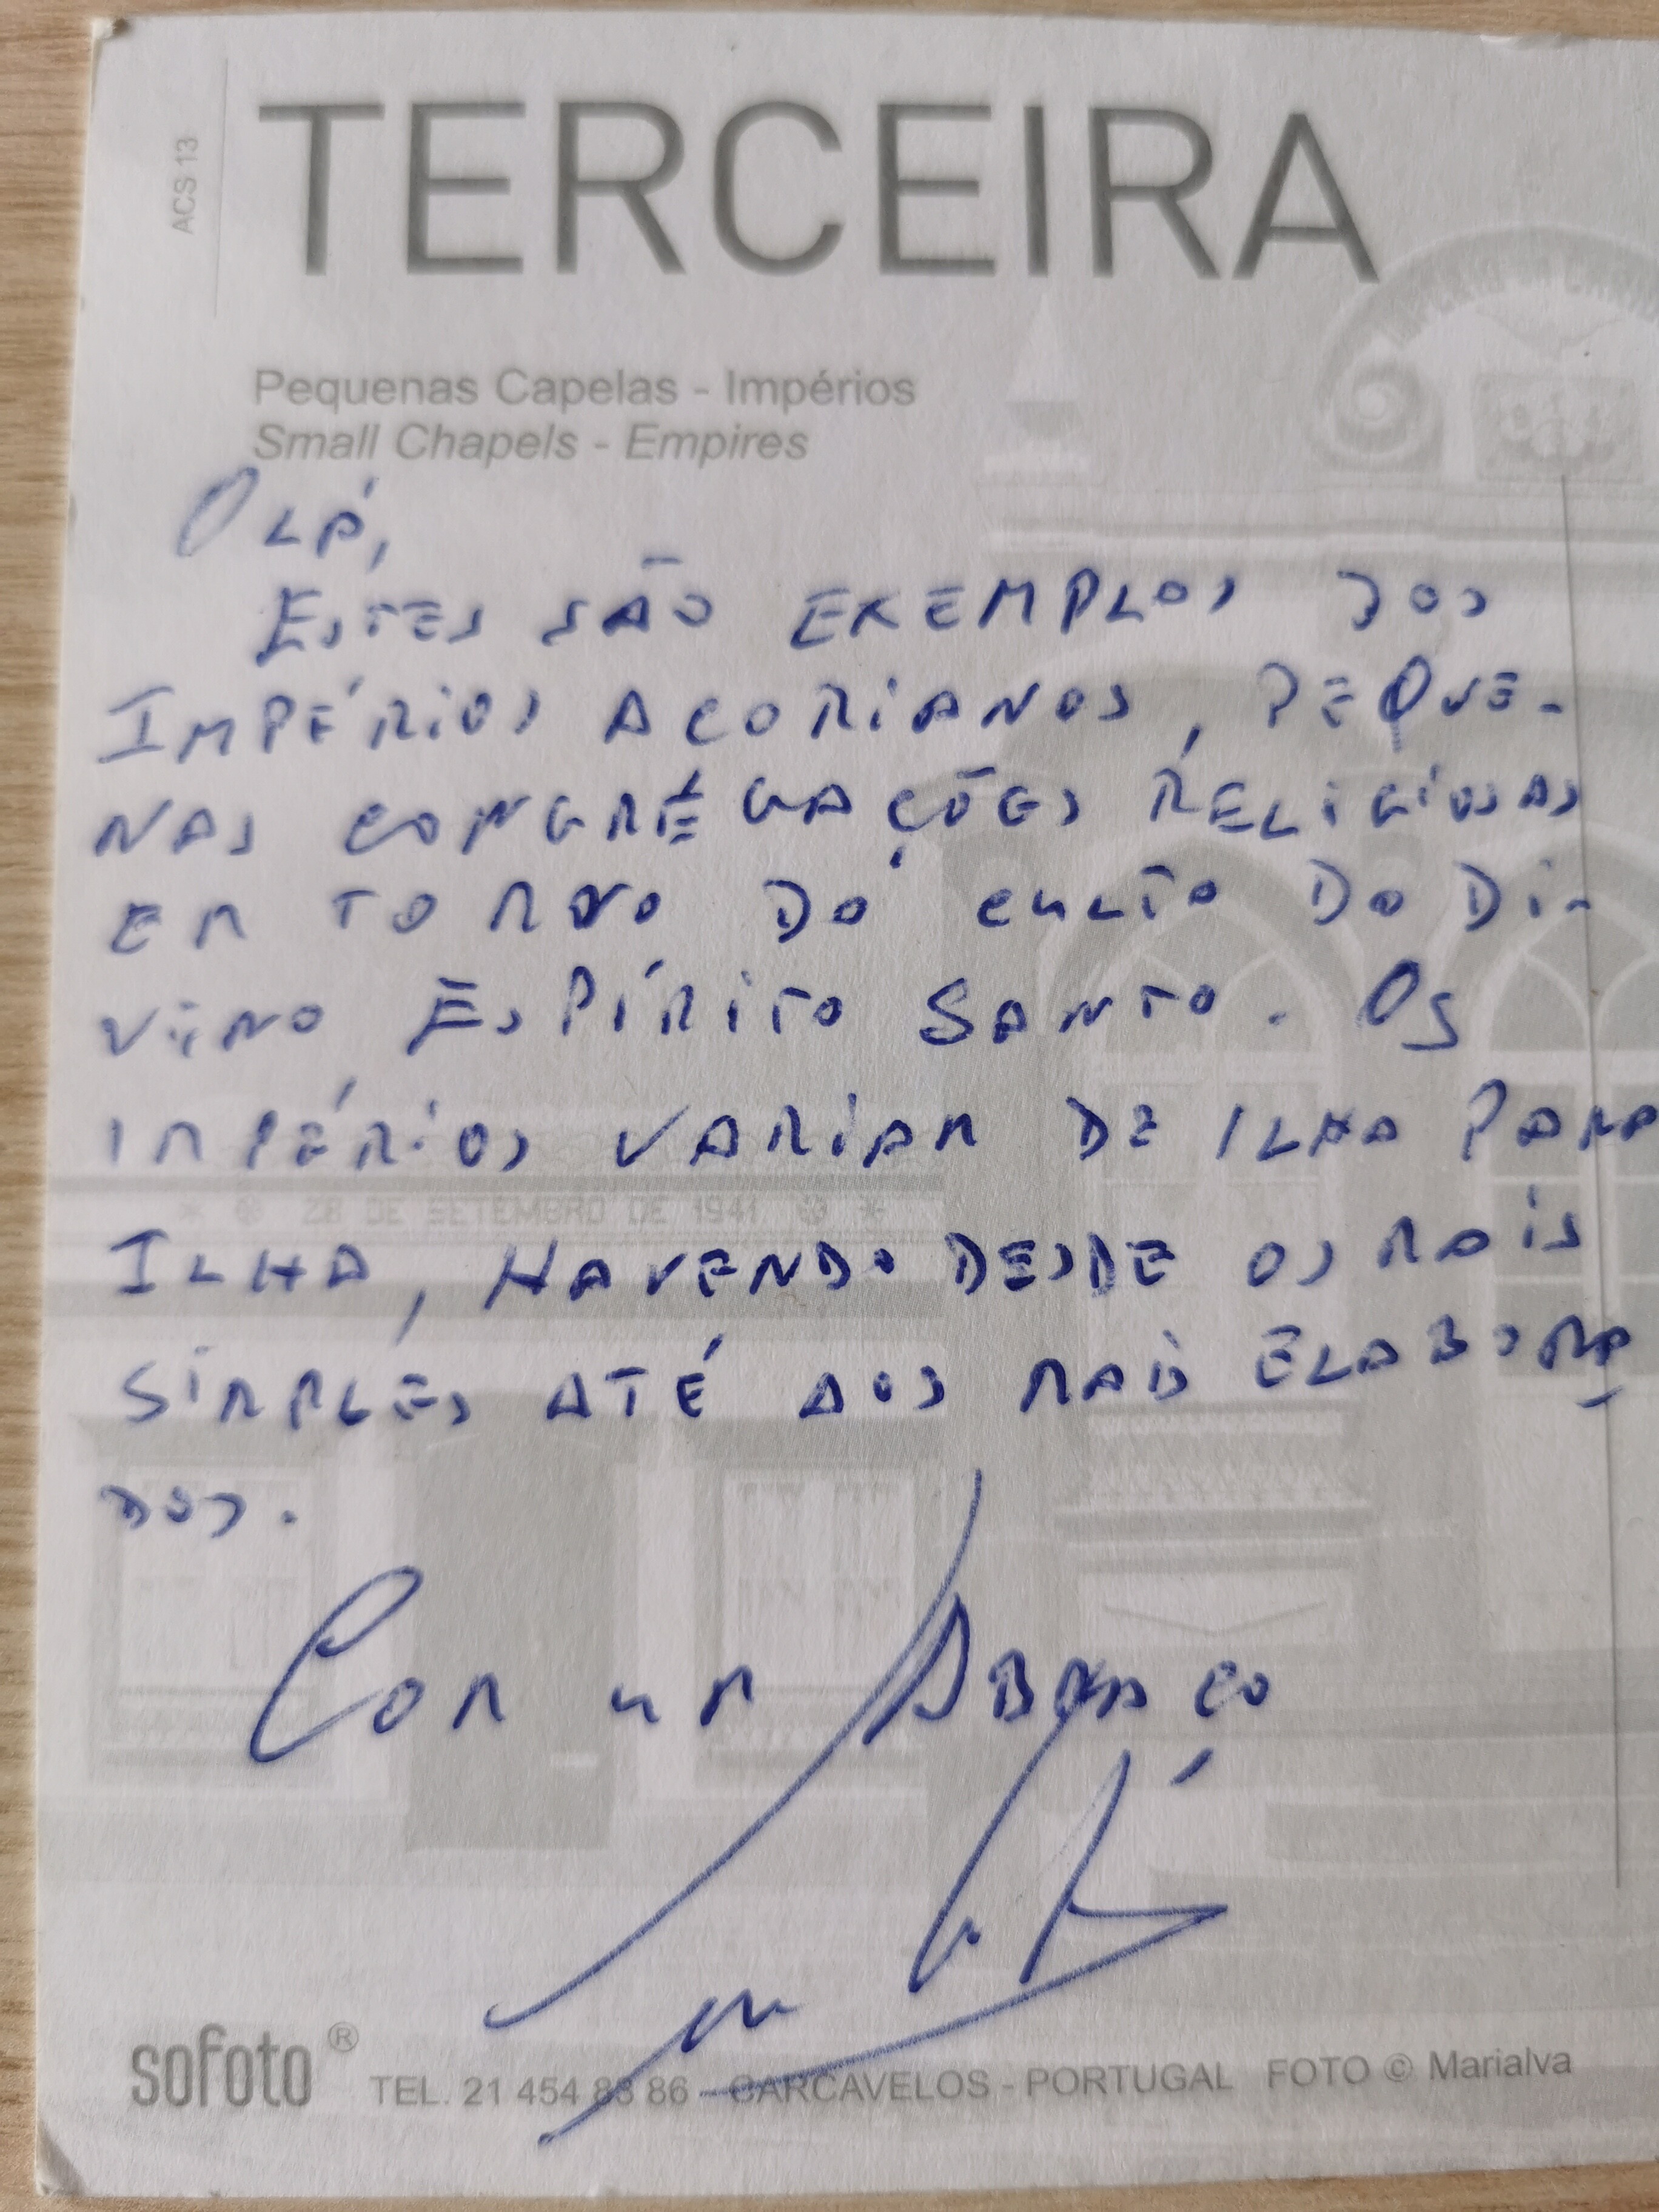 ACS 13
TERCEIRA
Pequenas Capelas - Impérios
Small Chapels - Empires
OLÁ,
ESTES SÃO EXEMPLOS DOS
IMPÉRIOS AÇORIANOS, PEQUE-
NAS CONGREGAÇÕES RELIGIOSAS
EM TORNO DO CULTO DO DI-
VINO ESPÍRITO SANTO. OS
IMPÉRIOS VARIAM DE ILHA PARA
28 DE SETEMBRO DE 1941
ILHA, HAVENDO DESDE OS MAIS
SIMPLES ATÉ AOS MAIS ELABORA
DOS.
COM UM ABRAÇO
sofoto ® TEL. 21 454 83 86 - CARCAVELOS - PORTUGAL FOTO © Marialva